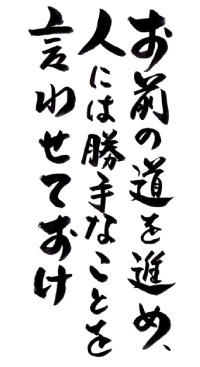 お前の道を進め、
人には勝手なことを
言わせておけ